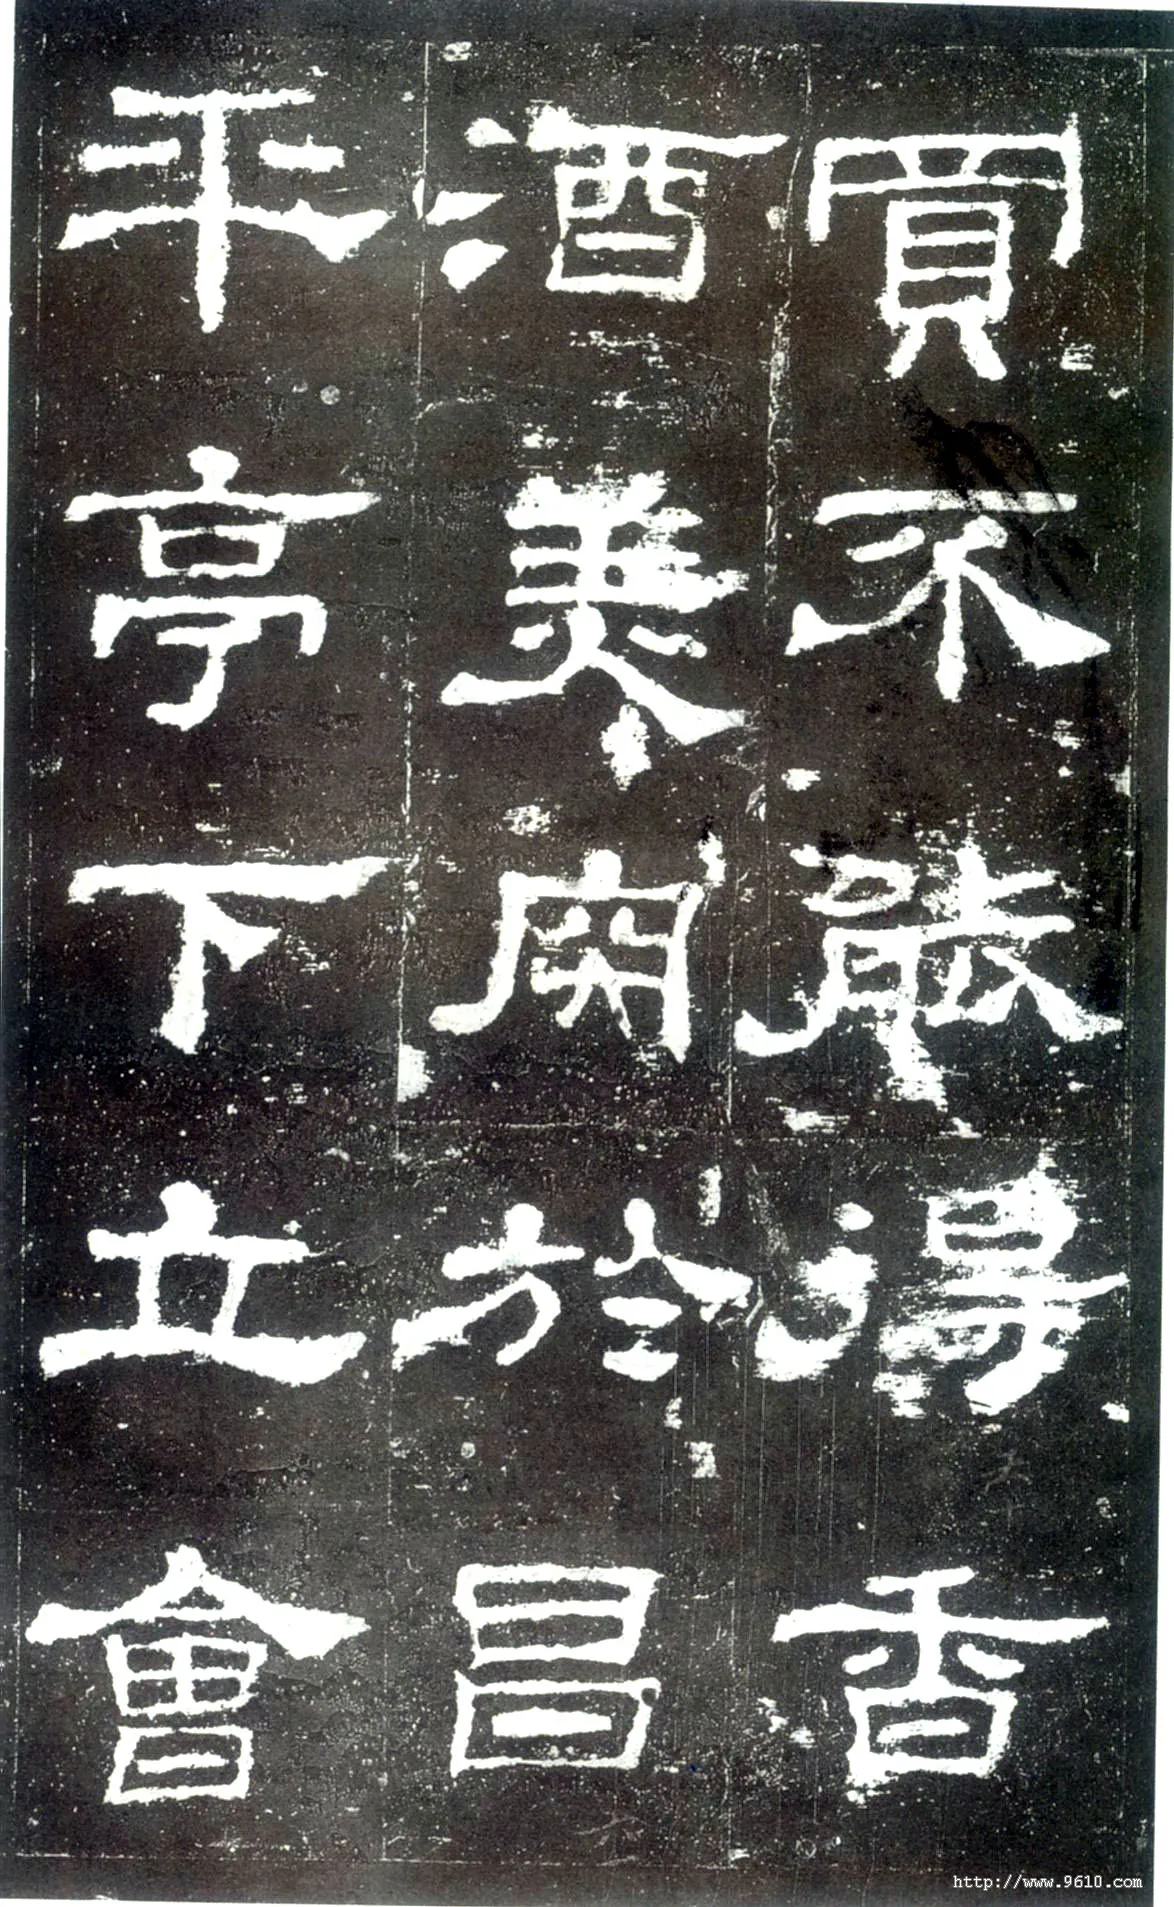 買不能得香
酒美肉於昌
平亭下立會
http://www.9610.com